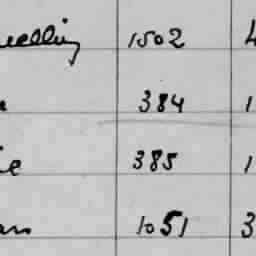 uelling 1502 4
384 1
ie 385 1
an 1051 3